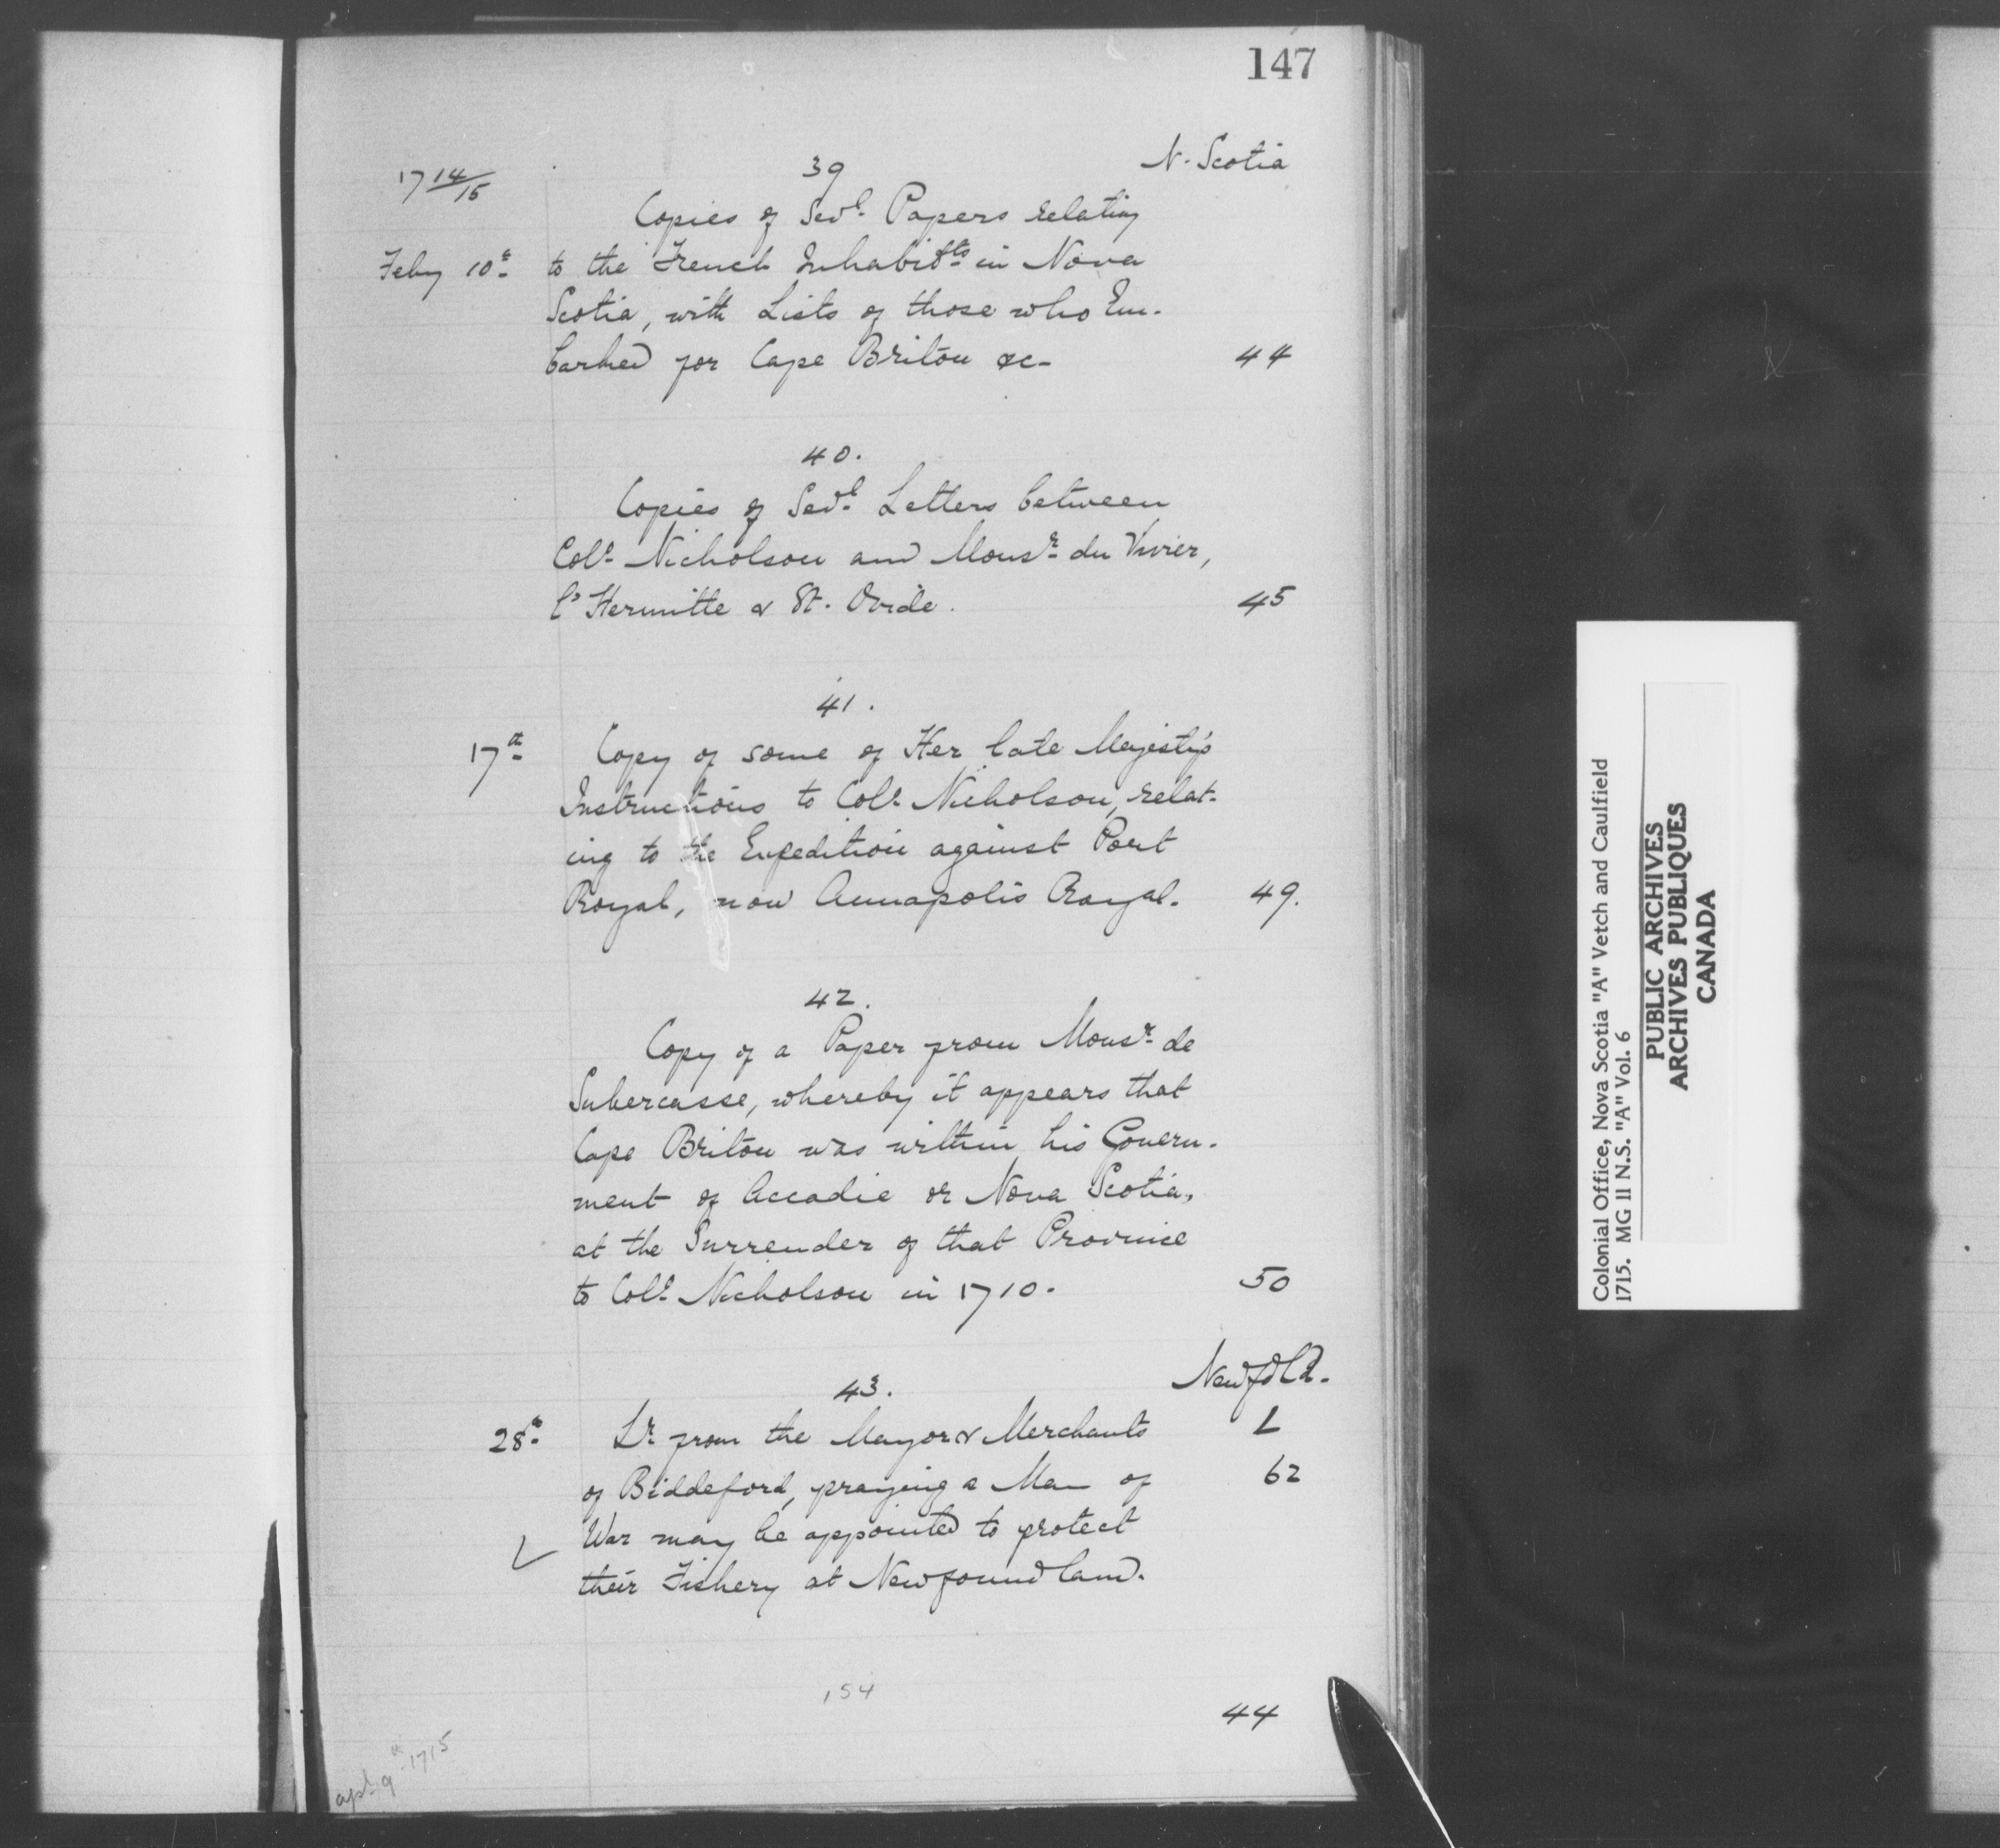 147
N. Scotia
39
17 14/15
Copies of Sevl. Papers relating
Feby 10th to the French Inhabitts in Nova
Scotia, with Lists of those who Em-
barked for Cape Briton &c- 44
40.
Copies of Sevl. Letters between
Coll. Nicholson and Monsr. du Vivier,
l'Hermitte & St. Ovide. 45
41.
17th Copy of some of Her late Majesty's
Instructions to Coll. Nicholson, relat-
ing to the Expedition against Port
Royal, now Annapolis Royal. 49.
42.
Copy of a Paper from Monsr. de
Subercasse, whereby it appears that
Cape Briton was within his Govern-
ment of Accadie or Nova Scotia,
at the Surrender of that Province
to Coll. Nicholson in 1710. 50
Newfdld.
43.
28th Lr. from the Mayor & Merchants L
of Biddeford, praying a Man of 62
War may be appointed to protect
their Fishery at Newfoundland.
154
44
apl. 9th 1715
Colonial Office, Nova Scotia "A" Vetch and Caulfield
1715. MG II N.S. "A" Vol. 6
PUBLIC ARCHIVES
ARCHIVES PUBLIQUES
CANADA